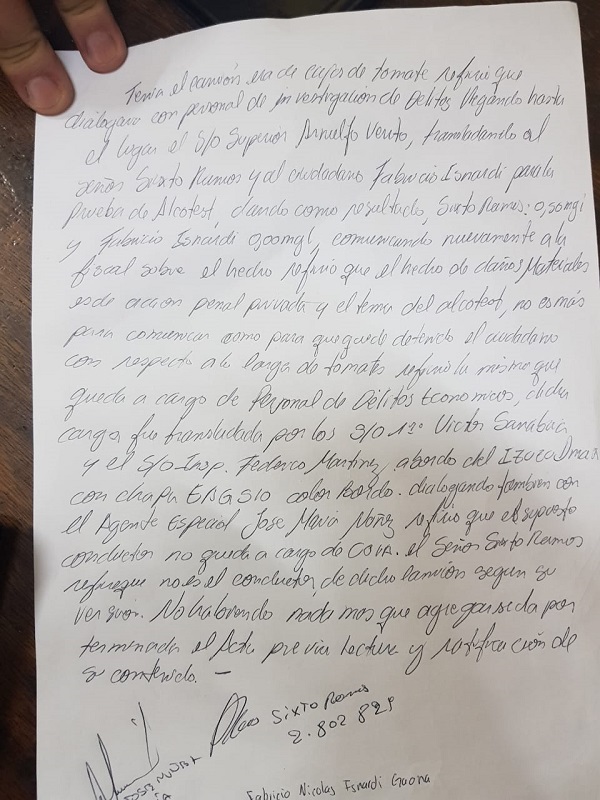 Tenia el camión era de cajas de tomate refirio que
dialogara con personal de investigación de Delitos llegando hasta
el lugar el S/O Superior Arnulfo Verito, trasladando al
señor Sixto Ramos y al ciudadano Fabricio Isnardi para la
Prueba de Alcotest, dando como resultado, Sixto Ramos: 0,50mgl
y Fabricio Isnardi 0,00mgl, comunicando nuevamente a la
fiscal sobre el hecho refirio que el hecho de daños Materiales
es de accion penal privada y el tema del alcotest, no es más
para comunicar como para que quede detenido el ciudadano
con respecto a la carga de tomates refirio la misma que
queda a cargo de Personal de Delitos Economicos, dicha
carga fue transladada por los S/O 1º Victor Sanabria
y el S/O Insp. Federico Martinez, abordo del IZUZU Dmax
con chapa color Bordo. dialogando tambien con
el Agente Especial Jose Maria Nuñez refirio que el supuesto
conductor no queda a cargo de el Señor Sixto Ramos
refiere que no es el conductor de dicho camión segun su
version. No habiendo nada mas que agregar se da por
terminada el Acta previa lectura y ratificación de
su contenido. —
Sixto Ramos
2.802 829
Fabricio Nicolas Isnardi Gaona